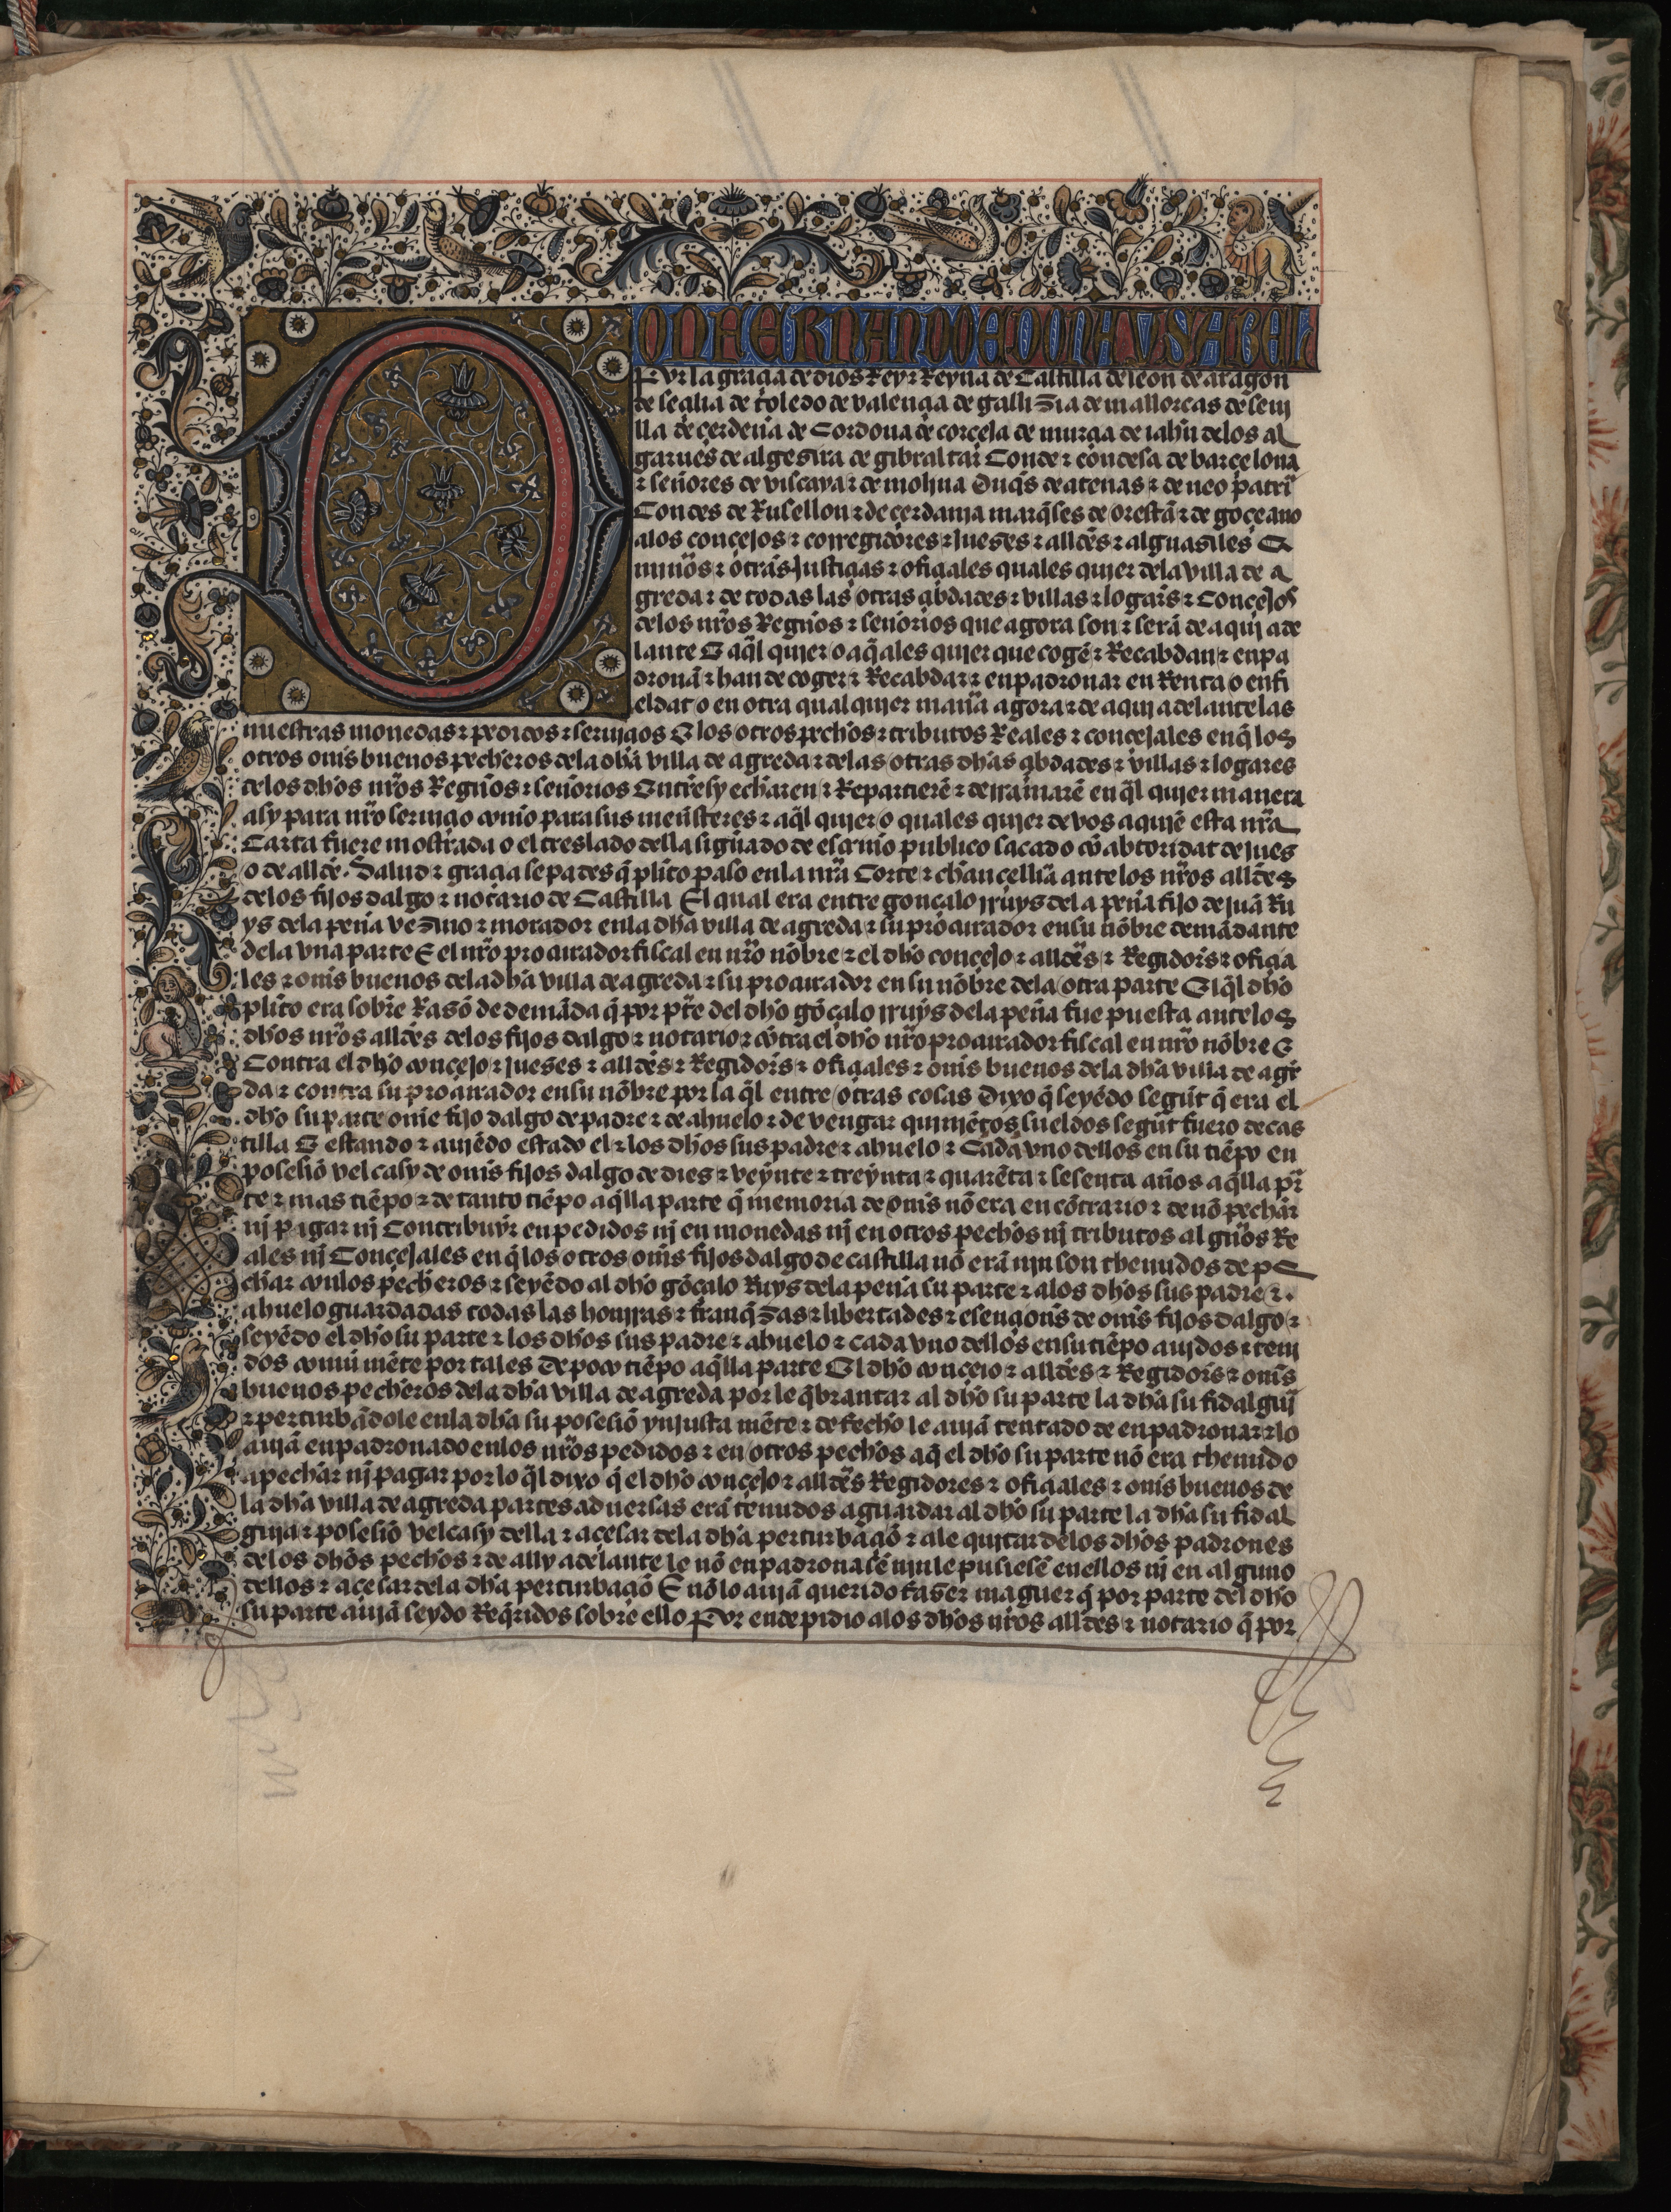 DON FERNANDO E DOÑA YSABEL
Por la graçia de dios Rey ⁊ Reyna de Castilla de leon de aragon
de seçilia de toledo de valençia de gallizia de mallorcas de seui
lla de çerdeña de Cordoua de corçega de murçia de iahn̄ delos al
garues de algesira de gibraltar Conde ⁊ condesa de barçelona
⁊ señores de viscaya ⁊ de molina Duq̄s de atenas ⁊ de neo patri
Condes de Rusellon ⁊ de çerdania marq̄ses de oristā ⁊ de goçeano
alos conçejos ⁊ corregidores ⁊ jueses ⁊ alldēs ⁊ alguasiles E
mīnos ⁊ otras justiçias ⁊ ofiçiales quales quier dela villa de a
greda ⁊ de todas las otras çibdades ⁊ villas ⁊ logars ⁊ Conçejos
delos nr̄os Regnos ⁊ señorios que agora son ⁊ serā de aqui ade
lante E aq̄l quier o aq̄ales quier que cogē ⁊ Recabdan ⁊ enpa
dronā ⁊ han de coger ⁊ Recabdar ⁊ enpadronar en Renta o enfi
eldat o en otra qual quier manā agora ⁊ de aqui adelante las
nuestras monedas ⁊ pedidos ⁊ seruiçios E los otros pechos ⁊ tributos Reales ⁊ conçejales en q̄ los
otros om̄s buenos pecheros dela dh̄a villa de agreda ⁊ delas otras dh̄as çibdades ⁊ villas ⁊ logares
delos dh̄os nr̄os Regnos ⁊ señorios Entresy echaren ⁊ Repartierē ⁊ derramarē en q̄l quier manera
asy para nr̄o seruiçio como para sus menesteres ⁊ aq̄l quier o quales quier de vos a quiē esta nr̄a
Carta fuere mostrada o el treslado della signado de escriuano publico sacado cō abtoridat de jues
o de alldē. Salud ⁊ graçia sepades q̄ plito paso enla nr̄a Corte ⁊ chançellīa ante los nr̄os alldēs
delos fijos dalgo ⁊ notario de Castilla El qual era entre gonçalo rruys dela peña fijo de juā Ru
ys dela peña vezino ⁊ morador enla dh̄a villa de agreda ⁊ su procurador en su nōbre demādante
dela vna parte E el nr̄o procurador fiscal en nr̄o nōbre ⁊ el dh̄o conçejo ⁊ alldēs ⁊ Regidors ⁊ ofiçia
les ⁊ om̄s buenos dela dh̄a villa de agreda ⁊ su procurador en su nōbre dela otra parte El q̄l dh̄o
plito era sobre Rasō de demāda q̄ por pr̄te del dh̄o gōçalo rruys dela peña fue puesta ante los
dh̄os nr̄os alldēs delos fijos dalgo ⁊ notario ⁊ cōtra el dh̄o nr̄o procurador fiscal en nr̄o nōbre E
Contra el dh̄o conçejo ⁊ jueses ⁊ alldēs ⁊ Regidors ⁊ ofiçiales ⁊ om̄s buenos dela dh̄a villa de agre
da ⁊ contra su procurador en su nōbre por la q̄l entre otras cosas Dixo q̄ seyēdo segūt q̄ era el
dh̄o su parte om̄e fijo dalgo de padre ⁊ de ahuelo ⁊ de vengar quiniētos sueldos segūt fuero de cas
tilla E estando ⁊ auiēdo estado el ⁊ los dh̄os sus padre ⁊ ahuelo ⁊ Cada vno dellos en su tiēpo en
posesiō vel casy de om̄s fijos dalgo de dies ⁊ veynte ⁊ treynta ⁊ quarēta ⁊ sesenta años aq̄lla pr̄
te ⁊ mas tiēpo ⁊ de tanto tiēpo aq̄lla parte q̄ memoria de om̄s nō era en cōtrario ⁊ de nō pechar
nj pagar nj Contribuyr en pedidos nj en monedas nj en otros pechos nj tributos algūos Re
ales nj Conçejales en q̄ los otros om̄s fijos dalgo de castilla nō erā njn son thenudos de pe
char conlos pecheros ⁊ seyēdo al dh̄o gōçalo Ruys dela peña su parte ⁊ alos dh̄os sus padre ⁊
ahuelo guardadas todas las honrras ⁊ franq̄zas ⁊ libertades ⁊ esençions de om̄s fijos dalgo ⁊
seyēdo el dh̄o su parte ⁊ los dh̄os sus padre ⁊ ahuelo ⁊ cada vno dellos en su tiēpo auidos ⁊ teni
dos comūmēte por tales De poco tiēpo aq̄lla parte El dh̄o conçejo ⁊ alldēs ⁊ Regidors ⁊ om̄s
buenos pecheros dela dh̄a villa de agreda por le q̄brantar al dh̄o su parte la dh̄a su fidalguj
⁊ perturbādole enla dh̄a su posesiō ynjustamēte ⁊ de fecho le auiā tentado de enpadronar ⁊ lo
auiā enpadronado enlos nr̄os pedidos ⁊ en otros pechos aq̄ el dh̄o su parte nō era thenudo
a pechar nj pagar por lo q̄l dixo q̄ el dh̄o conçejo ⁊ alldēs Regidores ⁊ ofiçiales ⁊ om̄s buenos de
la dh̄a villa de agreda partes aduersas erā tenudos a guardar al dh̄o su parte la dh̄a su fidal
guja ⁊ posesiō vel casy della ⁊ a çesar dela dh̄a perturbaçiō ⁊ a le quitar delos dh̄os padrones
delos dh̄os pechos ⁊ de ally adelante le nō enpadronasē njn le pusiesē enellos nj en alguno
dellos ⁊ a çesar dela dh̄a perturbaçiō E nō lo auiā querido faser maguer q̄ por parte del dh̄o
su parte auiā seydo Req̄ridos sobre ello Por ende pidio alos dh̄os nr̄os alldēs ⁊ notario q̄ por